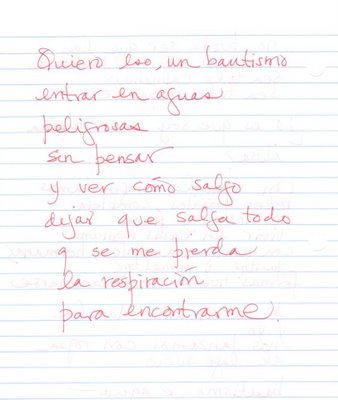 Quiero eso, un bautismo
entrar en aguas
peligrosas
sin pensar
y ver cómo salgo
dejar que salga todo
q se me pierda
la respiración
para encontrarme.